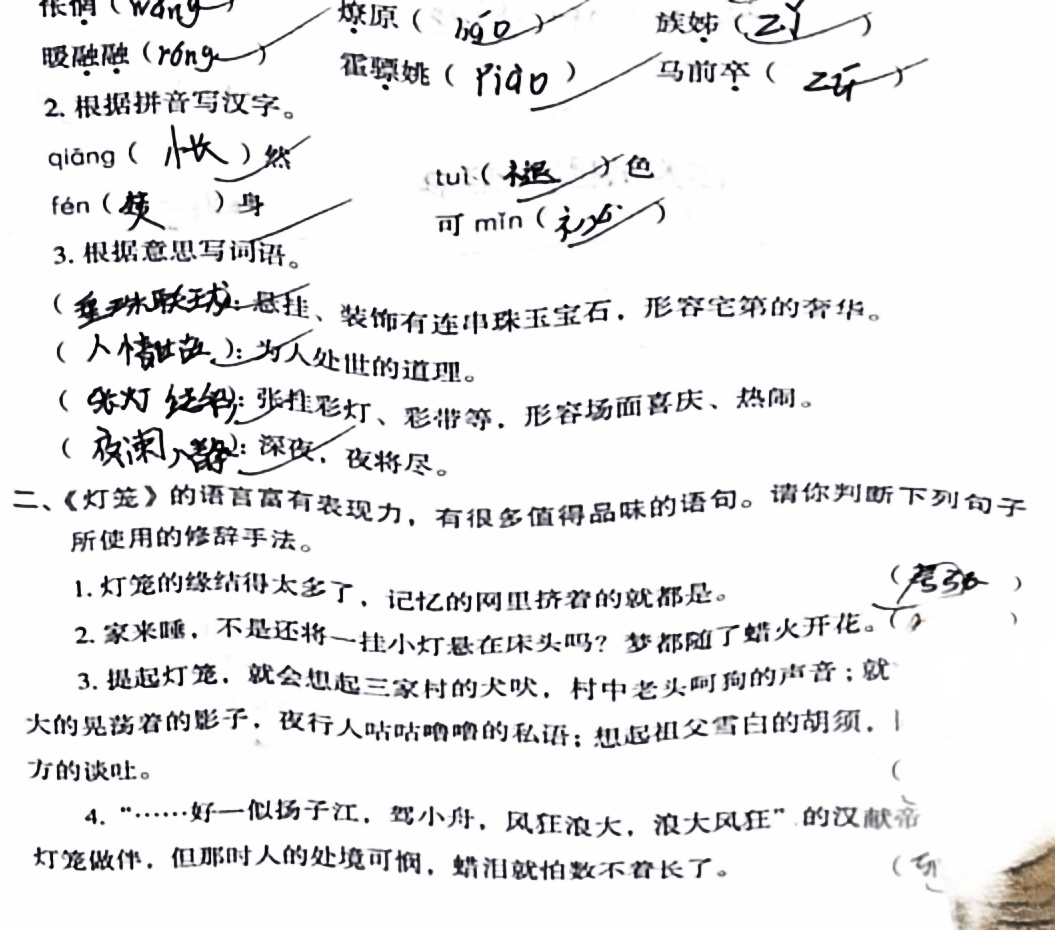 怅惘（wǎng）　燎原（liáo）　族姊（zǐ）
暖融融（róng）　霍骠姚（piào）　马前卒（zú）
2. 根据拼音写汉字。
qiāng（怅）然　tuì（褪）色
fén（焚）身　可 mǐn（）
3. 根据意思写词语。
（垂珠联珑）：悬挂、装饰有连串珠玉宝石，形容宅第的奢华。
（人情世故）：为人处世的道理。
（张灯结彩）：张挂彩灯、彩带等，形容场面喜庆、热闹。
（夜阑人静）：深夜，夜将尽。
二、《灯笼》的语言富有表现力，有很多值得品味的语句。请你判断下列句子
所使用的修辞手法。
1. 灯笼的缘结得太多了，记忆的网里挤着的就都是。（）
2. 家来睡，不是还将一挂小灯悬在床头吗？梦都随了蜡火开花。（）
3. 提起灯笼，就会想起三家村的犬吠，村中老头呵狗的声音；就
大的晃荡着的影子，夜行人咕咕噜噜的私语；想起祖父雪白的胡须，
方的谈吐。（
4. “……好一似扬子江，驾小舟，风狂浪大，浪大风狂”的汉献帝
灯笼做伴，但那时人的处境可悯，蜡泪就怕数不着长了。（